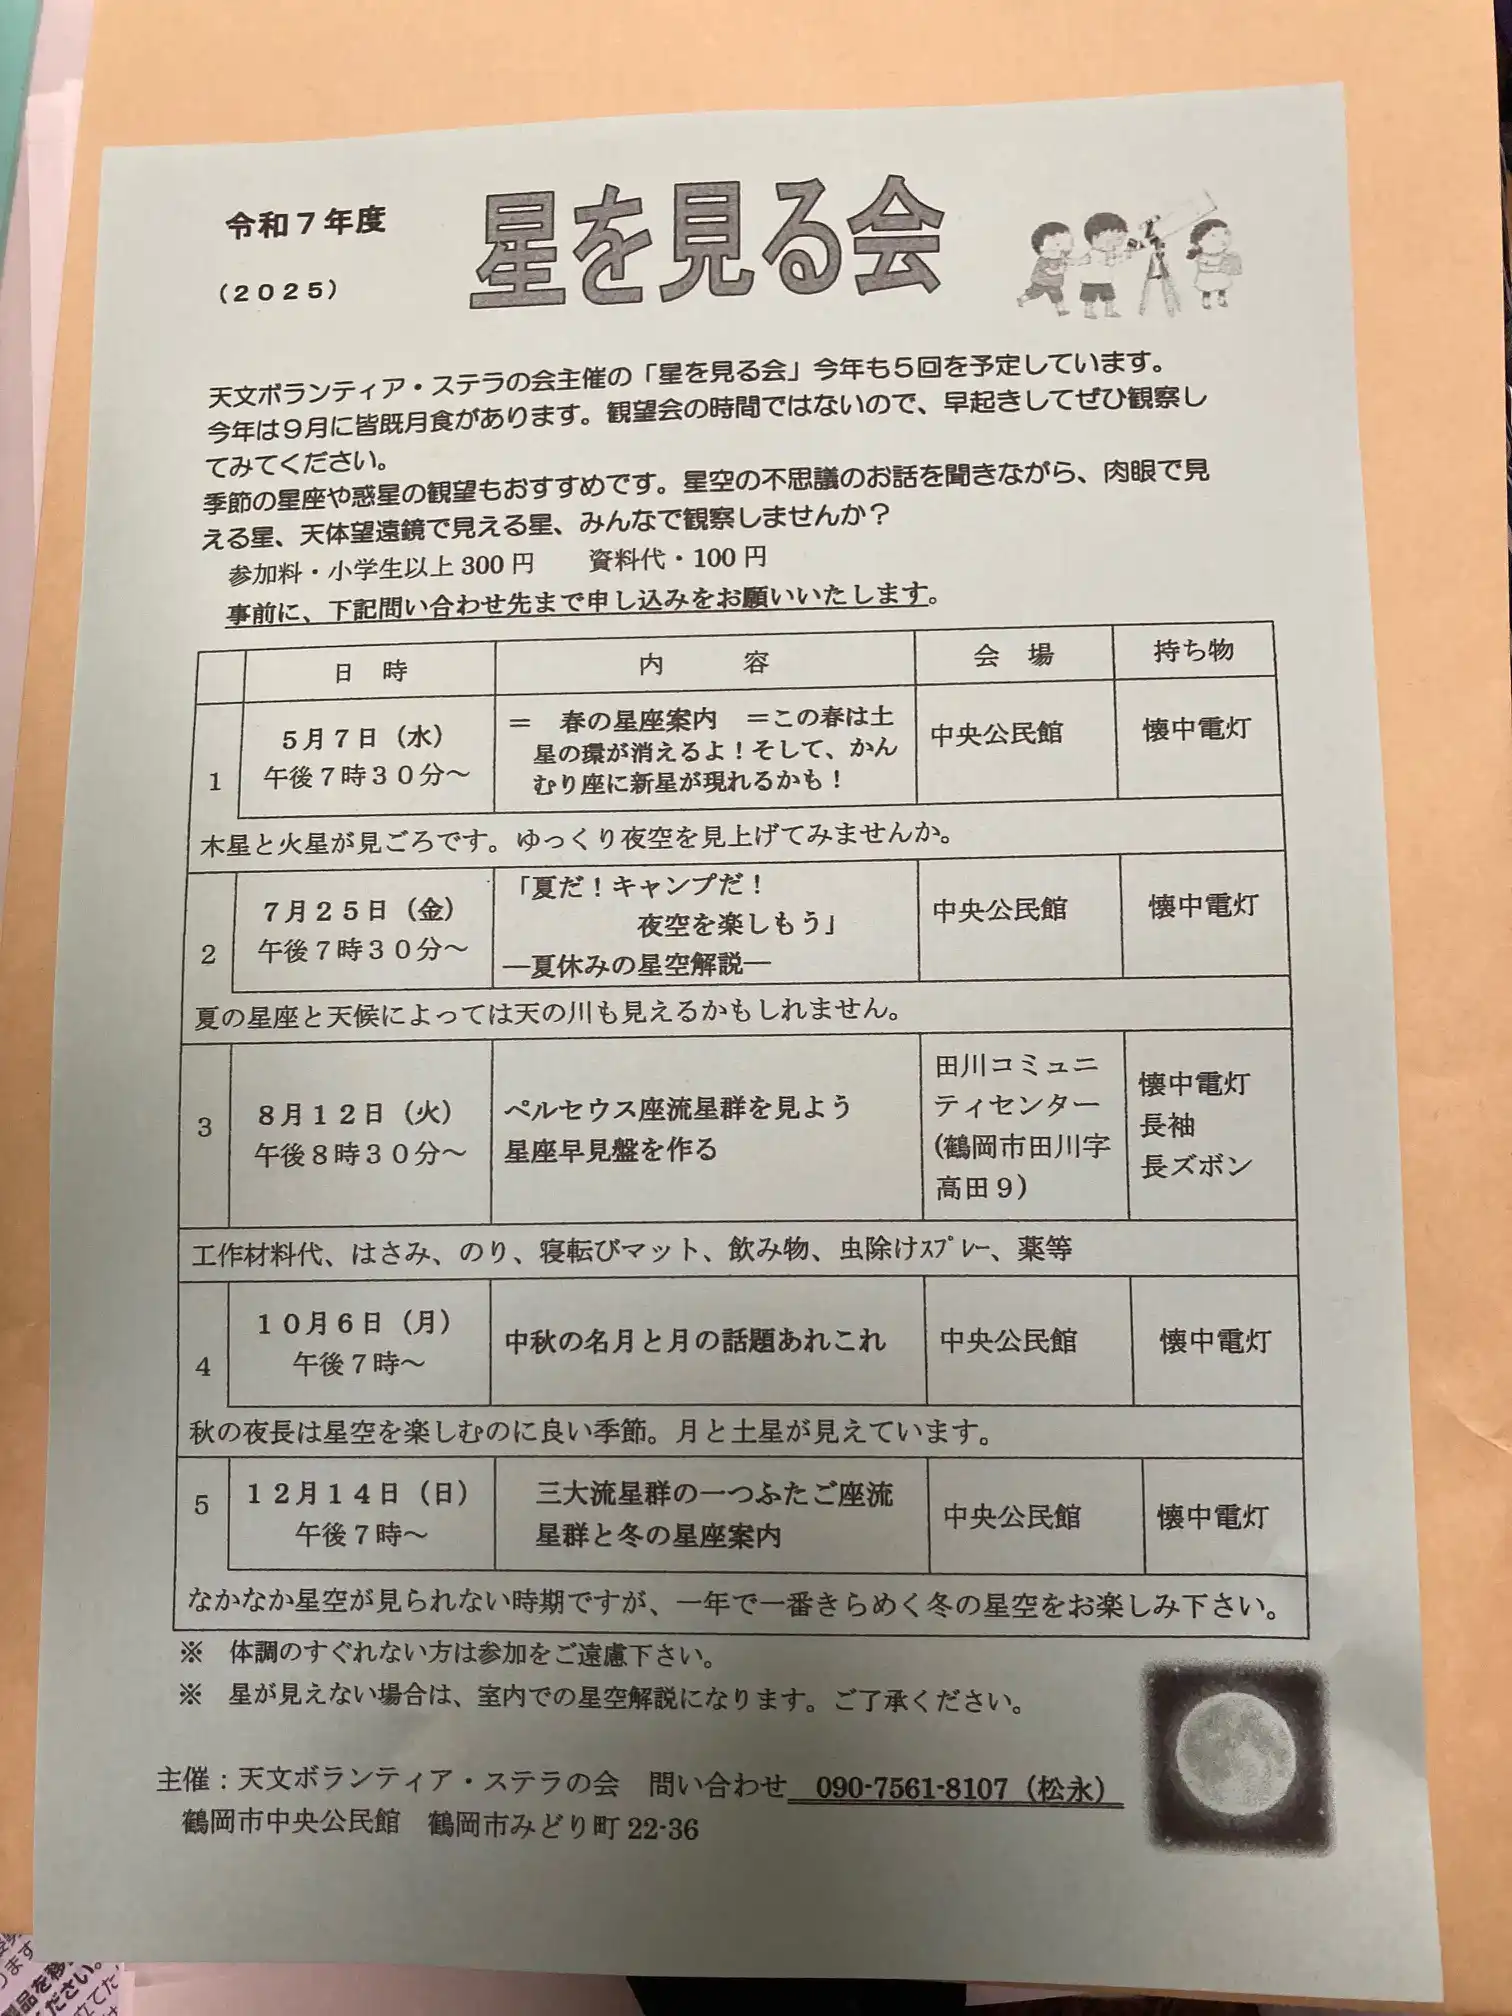 令和７年度
（２０２５）
星を見る会
天文ボランティア・ステラの会主催の「星を見る会」今年も５回を予定しています。
今年は９月に皆既月食があります。観望会の時間ではないので、早起きしてぜひ観察し
てみてください。
季節の星座や惑星の観望もおすすめです。星空の不思議のお話を聞きながら、肉眼で見
える星、天体望遠鏡で見える星、みんなで観察しませんか？
参加料・小学生以上 300 円　　資料代・100 円
事前に、下記問い合わせ先まで申し込みをお願いいたします。
日　時　内　容　会　場　持ち物
1
５月７日（水）
午後７時３０分～
＝　春の星座案内　＝この春は土
星の環が消えるよ！そして、かん
むり座に新星が現れるかも！
中央公民館
懐中電灯
木星と火星が見ごろです。ゆっくり夜空を見上げてみませんか。
2
７月２５日（金）
午後７時３０分～
「夏だ！キャンプだ！
夜空を楽しもう」
―夏休みの星空解説―
中央公民館
懐中電灯
夏の星座と天候によっては天の川も見えるかもしれません。
3
８月１２日（火）
午後８時３０分～
ペルセウス座流星群を見よう
星座早見盤を作る
田川コミュニ
ティセンター
(鶴岡市田川字
高田９)
懐中電灯
長袖
長ズボン
工作材料代、はさみ、のり、寝転びマット、飲み物、虫除けｽﾌﾟﾚｰ、薬等
4
１０月６日（月）
午後７時～
中秋の名月と月の話題あれこれ
中央公民館
懐中電灯
秋の夜長は星空を楽しむのに良い季節。月と土星が見えています。
5
１２月１４日（日）
午後７時～
三大流星群の一つふたご座流
星群と冬の星座案内
中央公民館
懐中電灯
なかなか星空が見られない時期ですが、一年で一番きらめく冬の星空をお楽しみ下さい。
※　体調のすぐれない方は参加をご遠慮下さい。
※　星が見えない場合は、室内での星空解説になります。ご了承ください。
主催：天文ボランティア・ステラの会　問い合わせ　090-7561-8107（松永）
鶴岡市中央公民館　鶴岡市みどり町 22-36